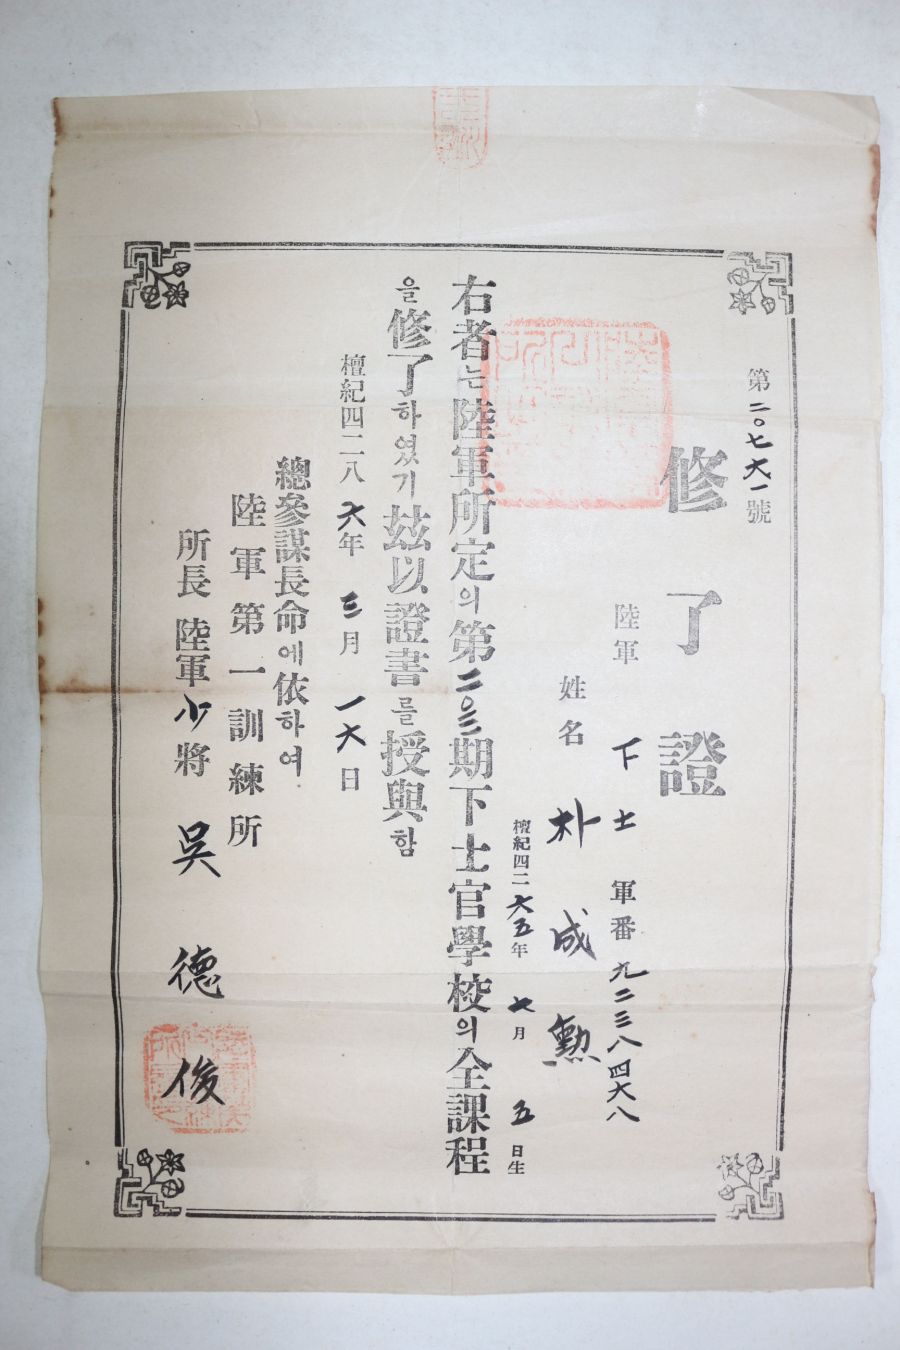 第二〇七六一號
修了證
陸軍 下士 軍番 九二三八四六八
姓名 朴成勳
檀紀四二六五年 七月 五日生
右者는陸軍所定의第二〇三期下士官學校의全課程
을修了하였기玆以證書를授與함
檀紀四二八六年 三月 一六日
總參謀長命에依하여
陸軍第一訓練所
所長 陸軍少將 吳德俊